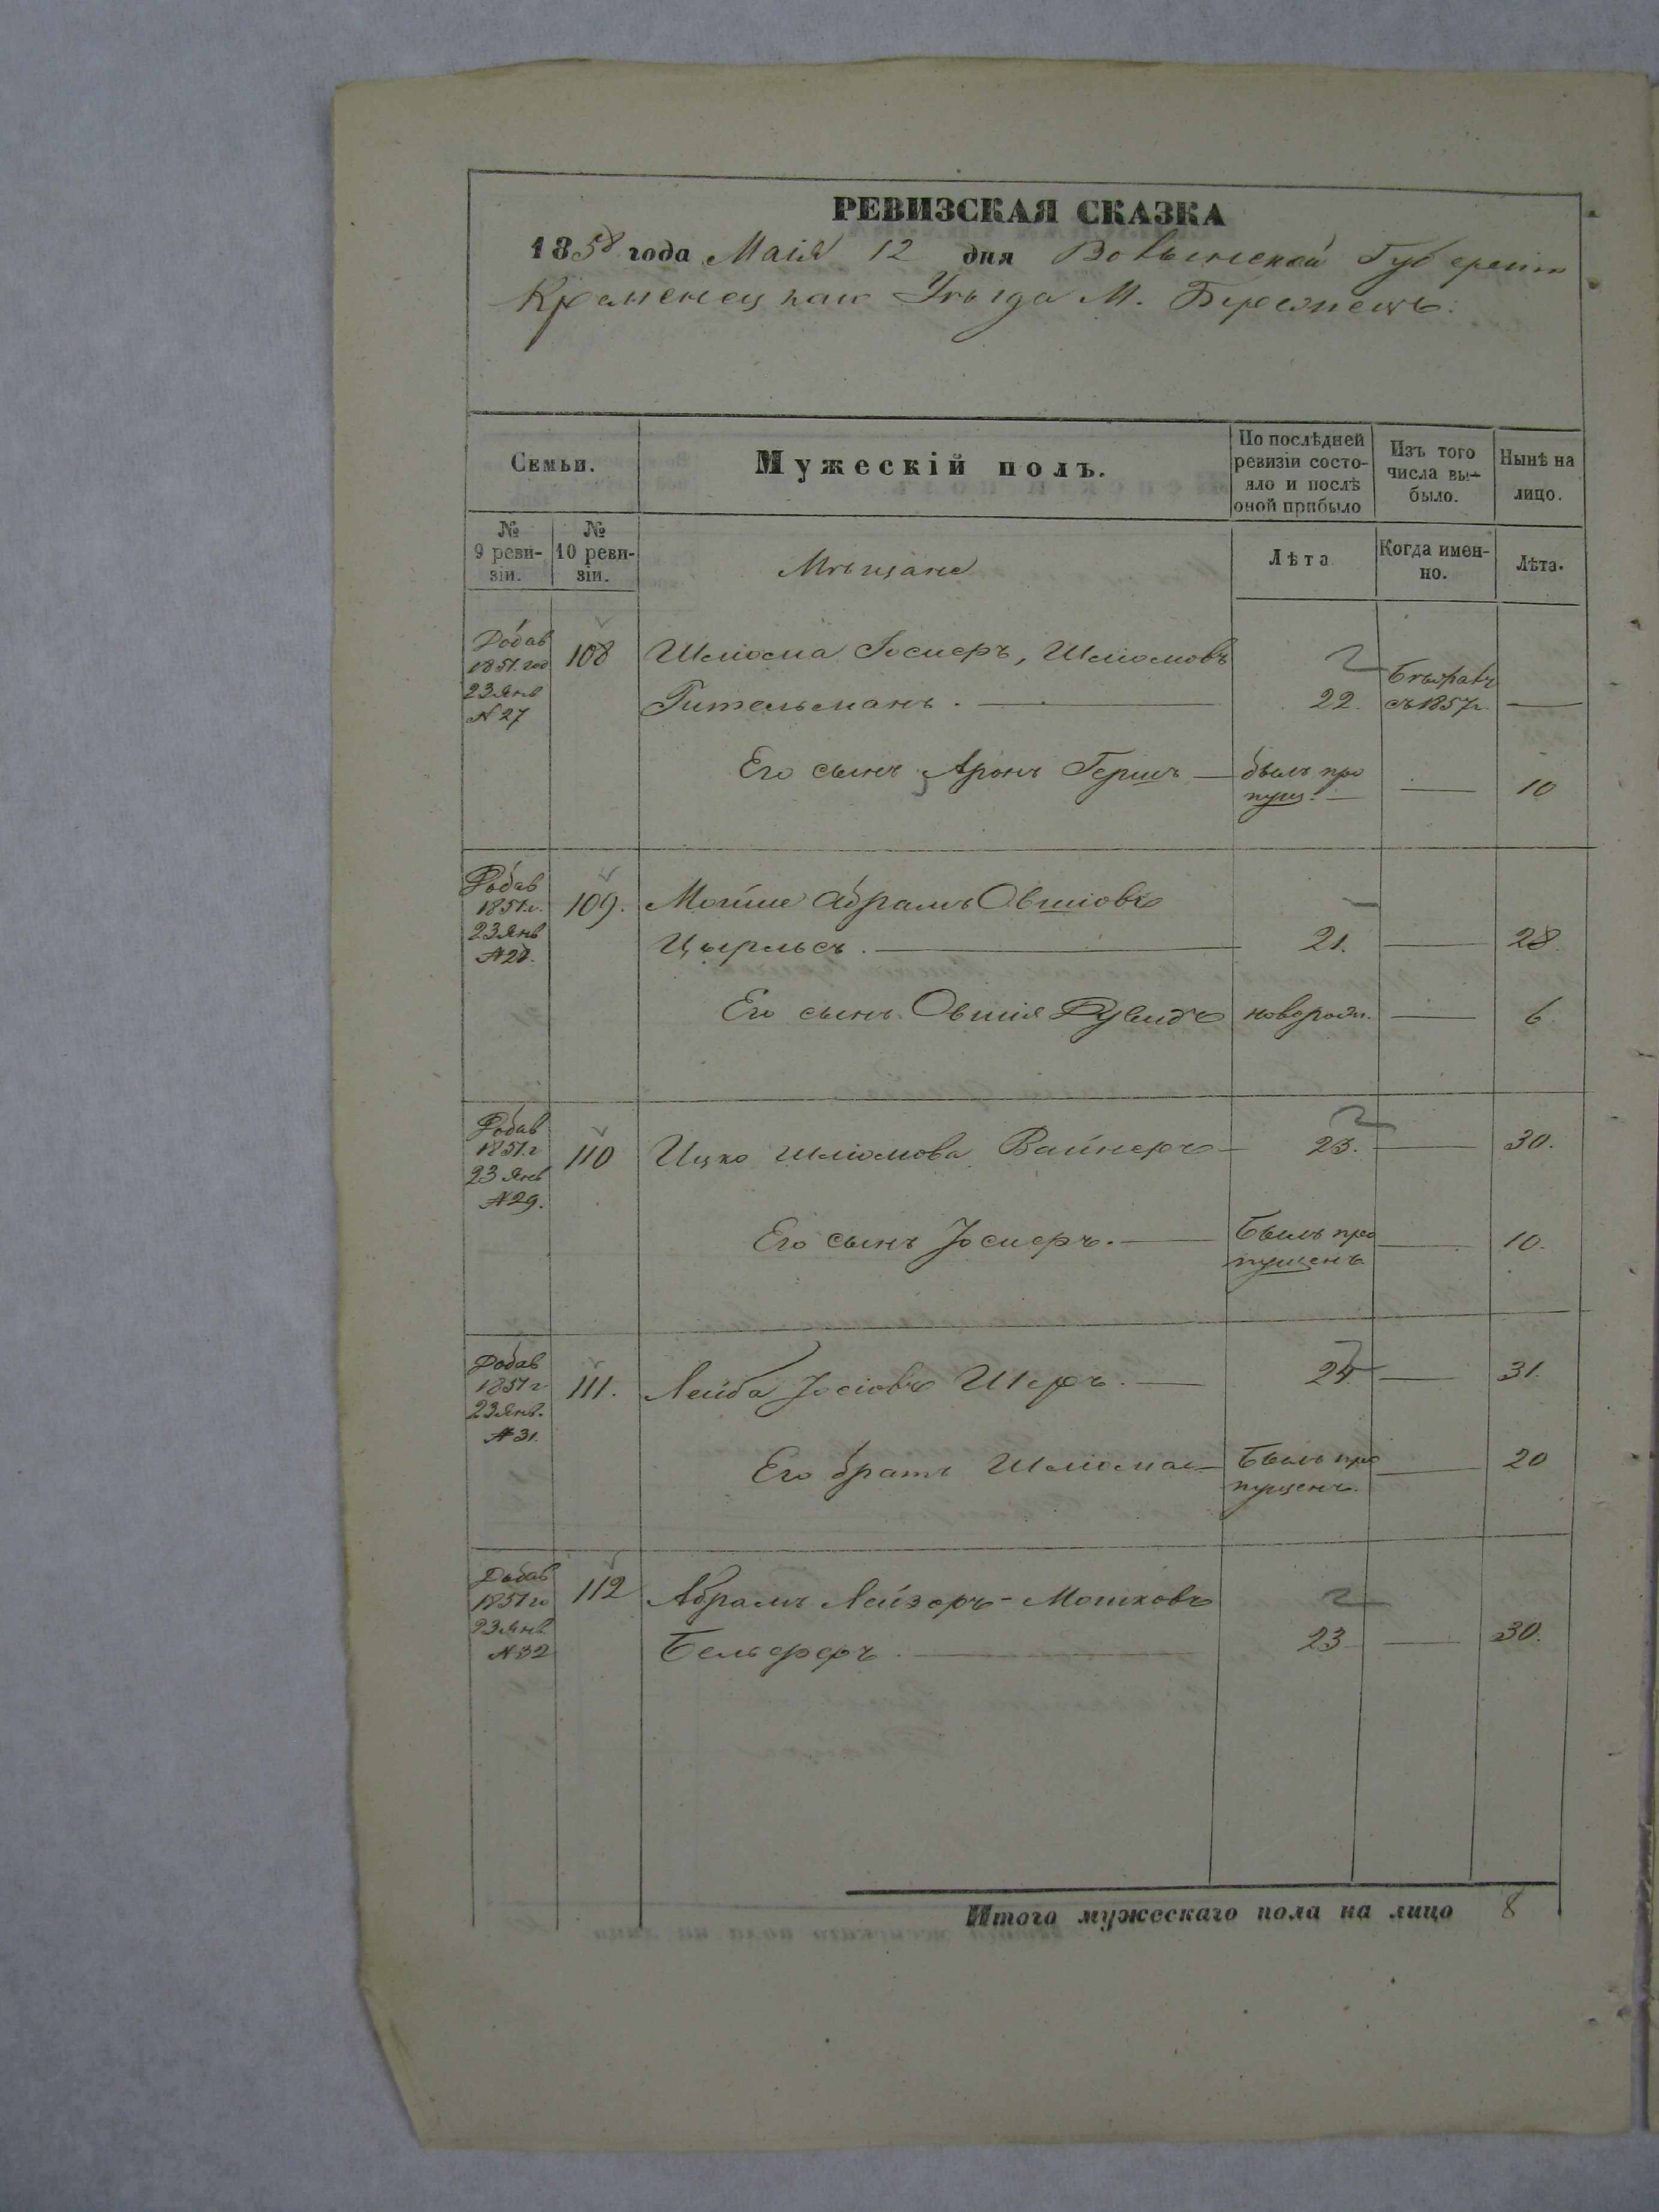 РЕВИЗСКАЯ СКАЗКА
1858 года Маія 12 дня Волынской Губерніи
Кременецкаго Уѣзда М. Бережецъ.
Семьи.
Мужескій полъ.
По послѣдней ревизіи состо-
яло и послѣ
оной прибыло
Изъ того
числа вы-
было.
Нынѣ на
лицо.
№
9 реви-
зіи.
№
10 реви-
зіи.
Мѣщане
Лѣта
Когда имен-
но.
Лѣта.
Добав
1851. год
23 Янв
№ 27
108
Шліома Іосиеръ, Шліомовъ
Гительманъ. — 22. съ 1857г. —
Его сынъ Аронъ Гершъ — былъ про
пущ. — — 10
Добав
1851.г.
23 Янв
№ 28.
109. Мойше Абрамъ Овшіовъ
Цырльсъ. — 21. — 28.
Его сынъ Овшія Дувидъ новорожд. — 6.
Добав
1851.г
23 Янв
№ 29.
110 Ицко Шліомовъ Вайнеръ — 23. — 30.
Его сынъ Іосиеръ. — Былъ про
пущенъ — 10.
Добав
1851 г
23 Янв.
№ 31.
111. Лейба Іосіовъ Шеръ. — 24 — 31.
Его братъ Шліома — Былъ про
пущенъ. — 20
Добав
1851 го
23 Янв
№ 32
112 Абрамъ Лейзоръ-Мошковъ
Бельферъ. — 23 — 30.
Итого мужескаго пола на лицо 8